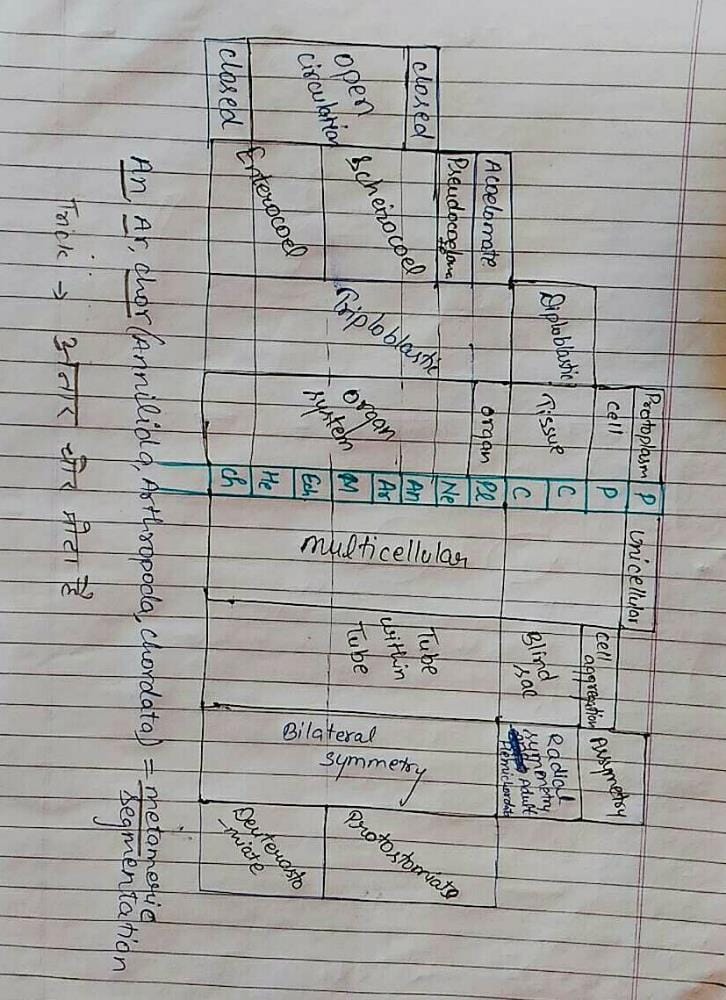 Protoplasm P Unicellular
cell P cell aggregation Assymetry
Diploblastic Tissue C Blind sac Radial symmetry Adult Hemichordate
C
Acoelomate organ Pl
Pseudocoelom Ne
closed An
Scheizocoel Triploblastic organ system Ar multicellular Tube within Tube Bilateral symmetry Protostomiate
open circulation M
Ech
Enterocoel He Deuterosto-miate
closed Ch
An, Ar, chor (Annilida, Arthropoda, chordata) = metameric segmentation
Trick → अनार चीर है